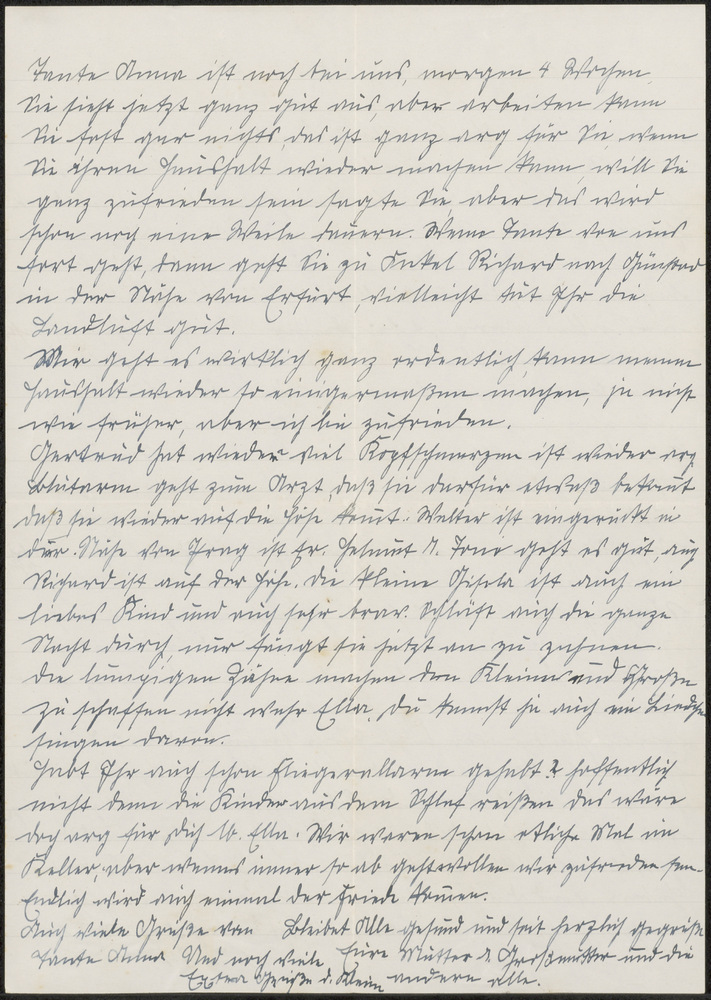 Tante Anna ist noch bei uns, morgen 4 Wochen,
Sie sieht jetzt ganz gut aus, aber arbeiten kann
Sie fast gar nichts, das ist ganz arg für Sie, wenn
Sie ihren Haushalt wieder machen kann, will Sie
ganz zufrieden sein sagte Sie aber das wird
schon noch eine Weile dauern. Wenn Tante von uns
fort geht, dann geht Sie zu Onkel Richard nach
in der Nähe von Erfurt, vielleicht tut Ihr die
Landluft gut.
Mir geht es wirklich ganz ordentlich, kann meinen
Haushalt wieder so einigermaßen machen, ja nicht
wie früher, aber ich bin zufrieden.
Gertrud hat wieder viel Kopfschmerzen ist wieder arg
blutarm geht zum Arzt, daß sie darfür etwaß bekomt
daß sie wieder auf die Höhe komt. Walter ist eingerückt in
der Nähe von Prag ist er. Helmut geht es gut, auch
Richard ist auf der Höhe. Die kleine Gisela ist auch ein
liebes Kind und auch sehr brav. Schläft auch die ganze
Nacht durch, nur fängt sie jetzt an zu zahnen.
Die lumpigen Zähne machen den Kleinen und Großen
zu schaffen nicht wahr Ella, Du kannst ja auch ein Liedchen
singen davon.
Habt Ihr auch schon Fliegerallarm gehabt? hoffentlich
nicht denn die Kinder aus dem Schlaf reißen das wäre
doch arg für Dich lb. Ella. Wir waren schon etliche Mal im
Keller, aber wenns immer so ab geht wollen wir zufrieden sein.
Endlich wird auch einmal der Friede kommen.
Auch viele Grüße von Bleibet Alle gesund und seit herzlich gegrüßt
Tante Anna Und noch viele Eure Mutter & Großmutter und die
Extra Grüße d. Klein andern alle.